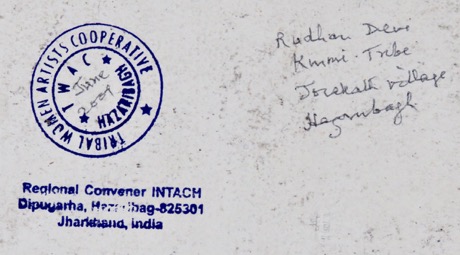 TRIBAL WOMEN ARTISTS COOPERATIVE
TWAC
HAZARIBAGH
June
2009
Rudhan Devi
Kurmi-Tribe
Jorakath village
Hazaribagh
Regional Convener INTACH
Dipugarha, Hazaribag-825301
Jharkhand, India